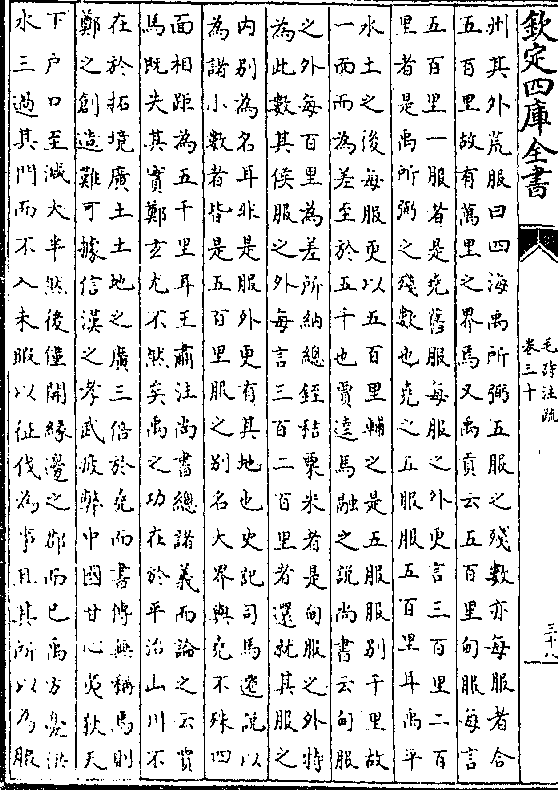 欽定四庫全書
毛詩注疏
卷三十
三十八
州其外荒服曰四海禹所弼五服之殘數亦每服者合
五百里故有萬里之界焉又禹貢云五百里甸服每言
五百里一服者是堯舊服每服之外更言三百里二百
里者是禹所弼之殘數也堯之五服服五百里耳禹平
水土之後每服更以五百里輔之是五服服別千里故
一面而為差至於五千也賈逵馬融之說尚書云甸服
之外每百里為差所納總銍秸粟米者是甸服之外特
為此數其侯服之外每言三百二百里者還就其服之
內別為名耳非是服外更有其地也史記司馬遷說以
為諸小數者皆是五百里服之別名大界與堯不殊四
面相距為五千里耳王肅注尚書總諸義而論之云賈
馬既失其實鄭玄尤不然矣禹之功在於平治山川不
在於拓境廣土土地之廣三倍於堯而書傳無稱焉則
鄭之創造難可據信漢之孝武疲弊中國甘心夷狄天
下戶口至減大半然後僅開緣邊之郡而已禹方憂洪
水三過其門而不入未暇以征伐為事且其所以為服